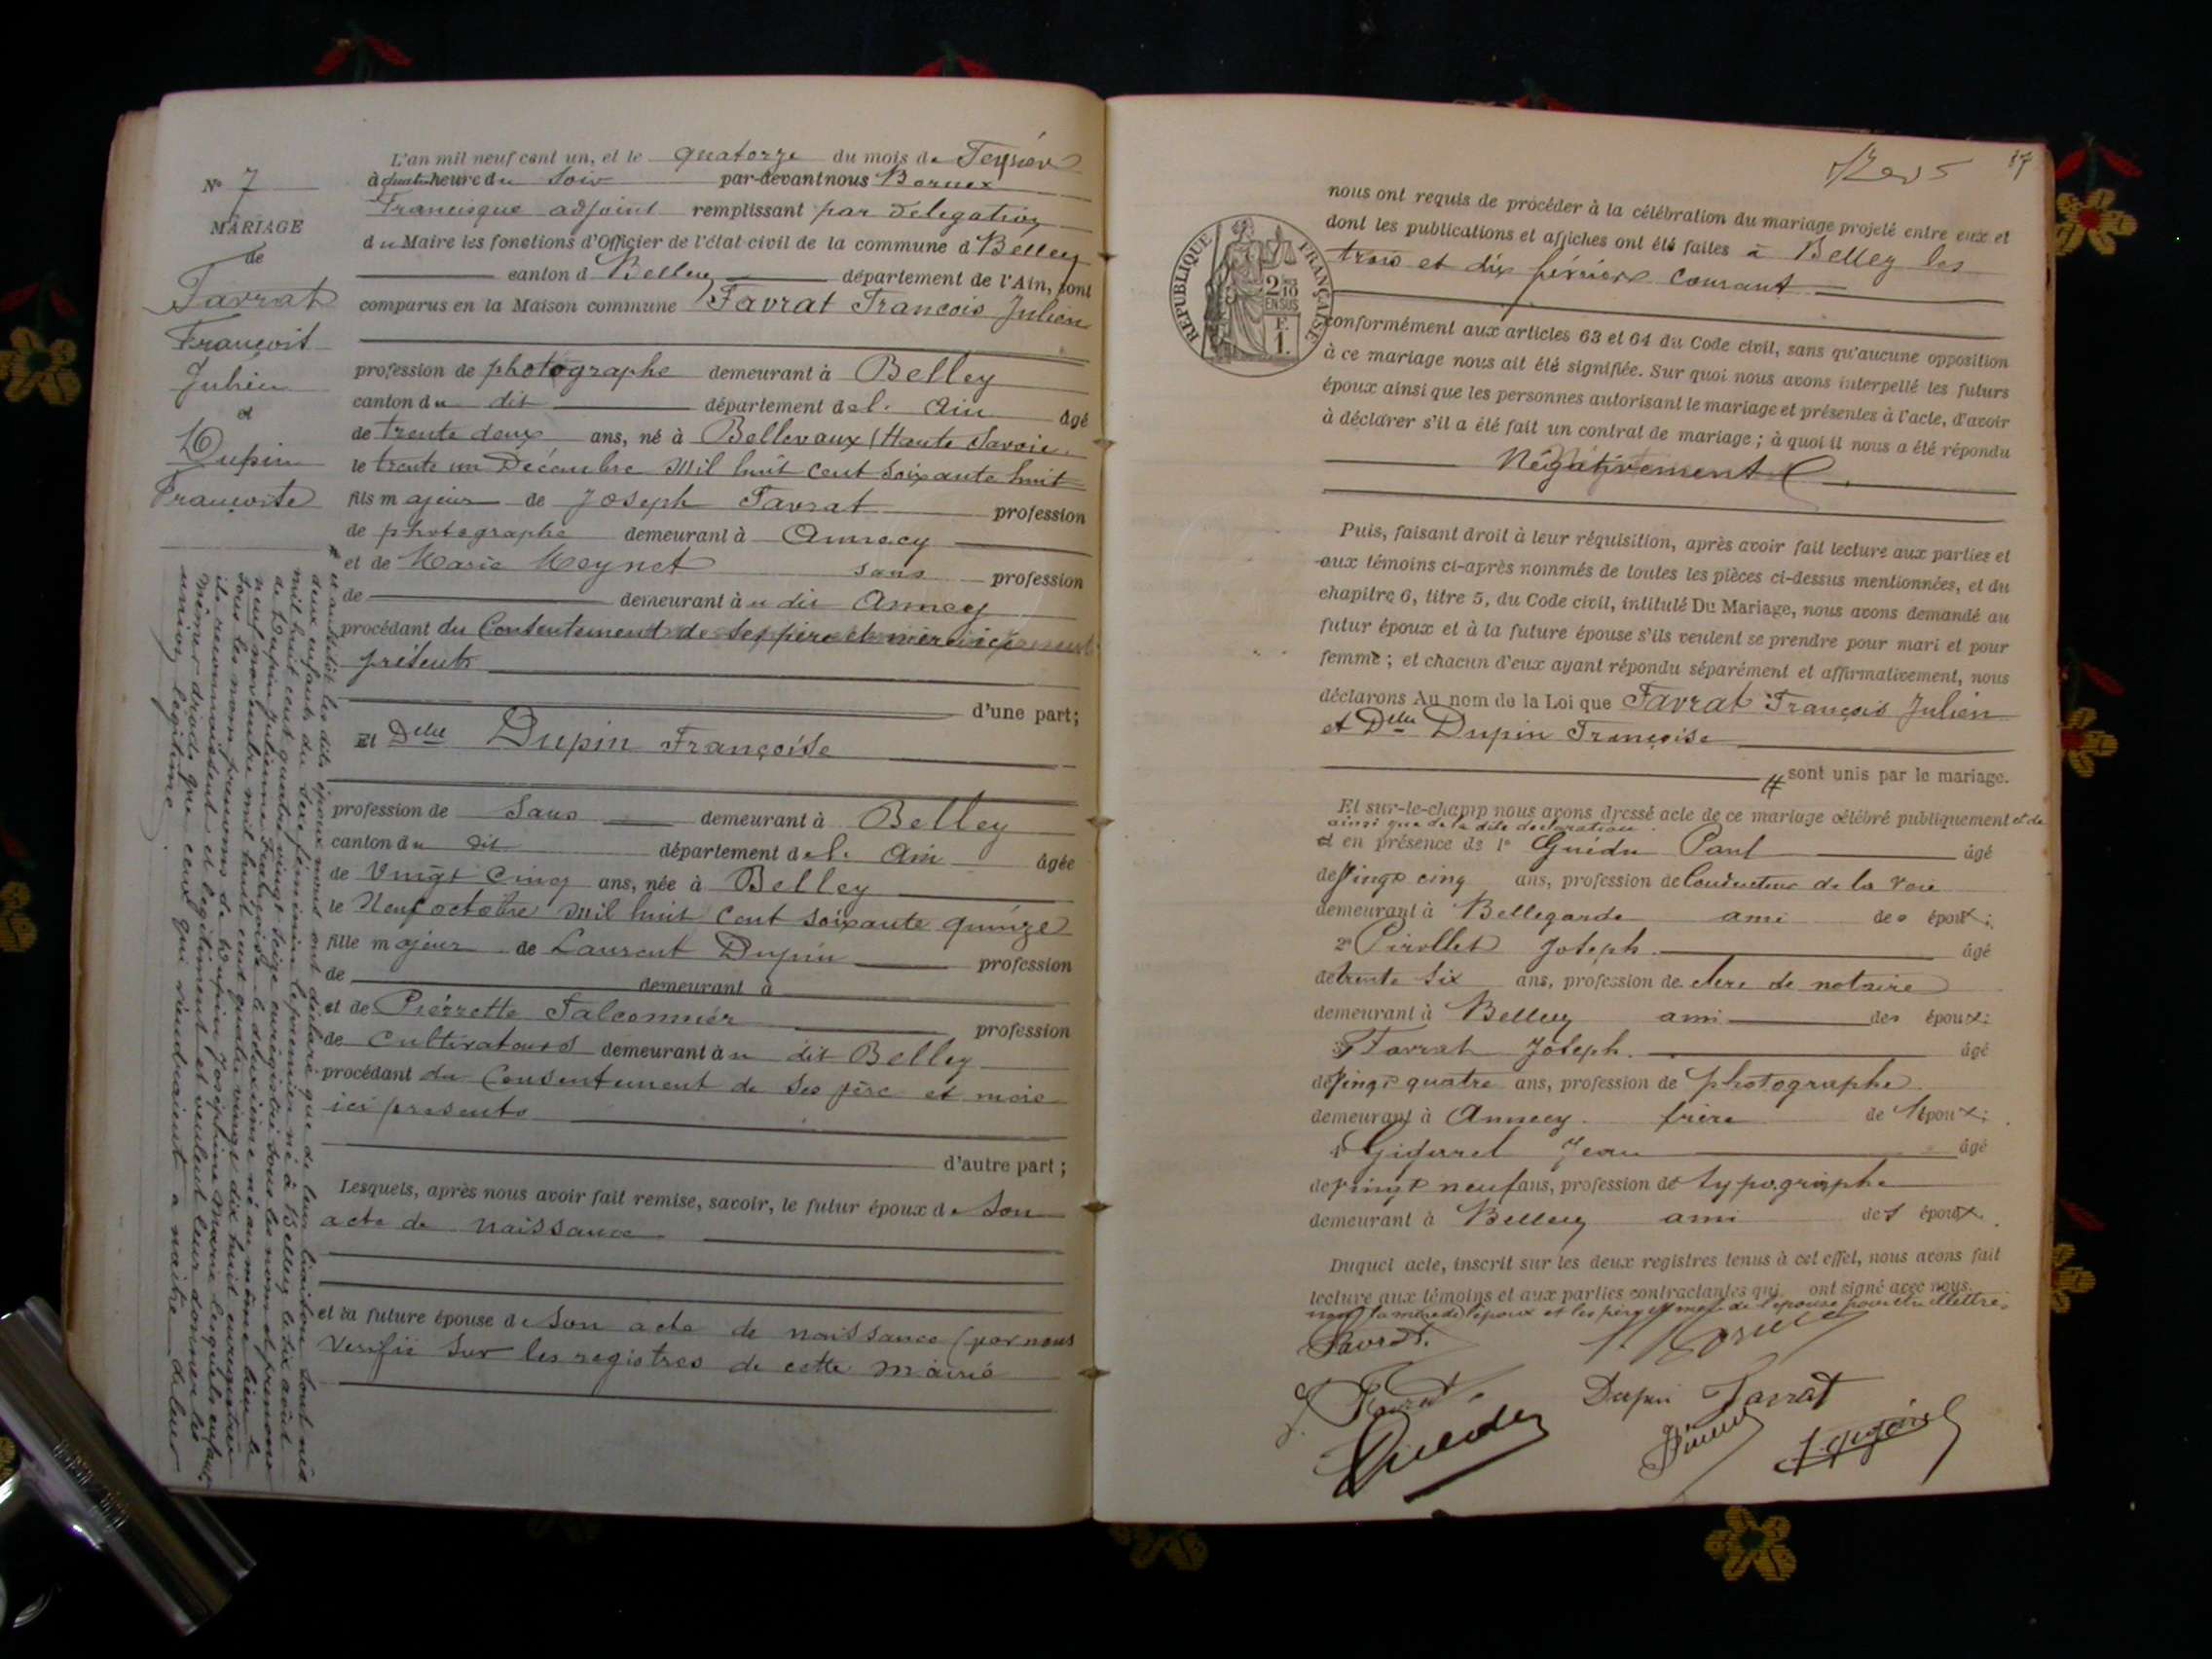 N° 7
MARIAGE
de
Favrat
François
Julien
et
Dupin
Françoise
L'an mil neuf cent un, et le quatorze du mois de Février
à quatre heure du soir par-devant nous Bornex
Francisque adjoint remplissant par délégation
du Maire les fonctions d'Officier de l'état civil de la commune d Belley
canton d Belley département de l'Ain, sont
comparus en la Maison commune Favrat François Julien
profession de photographe demeurant à Belley
canton du dit département de l'Ain âgé
de trente deux ans, né à Bellevaux (Haute Savoie
le trente un Décembre mil huit cent soixante huit
fils majeur de Joseph Favrat profession
de photographe demeurant à Annecy
et de Marie Meynet sans profession
de demeurant à u dit Annecy
procédant du Consentement de ses père et mère ici
présents
d'une part;
Et Delle Dupin Françoise
profession de Sans demeurant à Belley
canton du dit département de l'Ain âgée
de Vingt Cinq ans, née à Belley
le Neuf octobre mil huit cent soixante quinze
fille majeur de Laurent Dupin profession
de demeurant à
et de Pierrette Falconnier profession
de Cultivateurs demeurant à u dit Belley
procédant du Consentement de ses père et mère
ici présents
d'autre part;
Lesquels, après nous avoir fait remise, savoir, le futur époux de son
acte de naissance
et la future épouse de son acte de naissance (par nous
verifié sur les registres de cette mairie
et aussitôt les dits époux nous ont déclaré que de leur liaison sont nés
deux enfants du sexe féminin le premier né à Belley le six août
mil huit cent quatre vingt seize enregistré sous les nom et prénoms
de Dupin Julienne Françoise le deuxième né au même lieu le
neuf novembre mil huit cent quatre vingt dix huit enregistré
sous les nom prénoms de Dupin Joséphine Marie lesquels enfants
ils reconnaissent et légitiment et veulent leur donner les
mêmes droits que ceux qui viendraient à naître de leur
union légitime.
37
nous ont requis de procéder à la célébration du mariage projeté entre eux et
dont les publications et affiches ont été faites à Belley les
trois et dix février courant
RÉPUBLIQUE FRANÇAISE
2/10 EN SUS
F. 1.
conformément aux articles 63 et 64 du Code civil, sans qu'aucune opposition
à ce mariage nous ait été signifiée. Sur quoi nous avons interpellé les futurs
époux ainsi que les personnes autorisant le mariage et présentes à l'acte, d'avoir
à déclarer s'il a été fait un contrat de mariage; à quoi il nous a été répondu
Négativement
Puis, faisant droit à leur réquisition, après avoir fait lecture aux parties et
aux témoins ci-après nommés de toutes les pièces ci-dessus mentionnées, et du
chapitre 6, titre 5, du Code civil, intitulé Du Mariage, nous avons demandé au
futur époux et à la future épouse s'ils veulent se prendre pour mari et pour
femme; et chacun d'eux ayant répondu séparément et affirmativement, nous
déclarons Au nom de la Loi que Favrat François Julien
et Delle Dupin Françoise
sont unis par le mariage.
Et sur-le-champ nous avons dressé acte de ce mariage célébré publiquement et de
ainsi que de la dite déclaration
et en présence de 1° Guidu Paul âgé
de Vingt cinq ans, profession de Conducteur de la voie
demeurant à Bellegarde ami des époux;
2° Pirollet Joseph âgé
de trente six ans, profession de clerc de notaire
demeurant à Belley ami des époux;
3° Favrat Joseph âgé
de Vingt quatre ans, profession de photographe
demeurant à Annecy frère de l'époux;
4° Giguret Jean âgé
de Vingt neuf ans, profession de typographe
demeurant à Belley ami des époux.
Duquel acte, inscrit sur les deux registres tenus à cet effet, nous avons fait
lecture aux témoins et aux parties contractantes qui ont signé avec nous
non la mère de l'époux et les père et mère de l'épouse pour être illettrés
Favrat.
Dupin Favrat